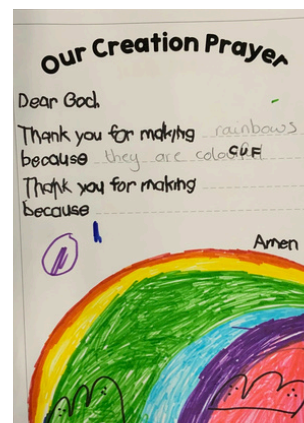 Our Creation Prayer
Dear God,
Thank you for making rainbows
because they are colourful
Thank you for making
because
Amen